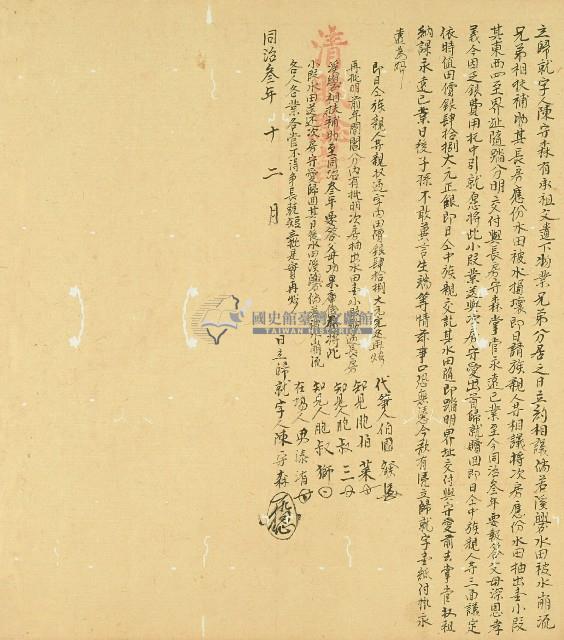 立歸就字人陳守森有承祖父遺下物業兄弟分居之日立刻相議倘若溪墘水田被水崩流
兄弟相扶補助其長房應份水田被水損壞即日請族親人等相議將次房應份水田抽出壹小段
其東西四至界址隨踏分明交付與長房守森掌管永遠己業至今同治叁年要報答父母深恩孝
義今因乏銀費用托中引就愿將此小段業送與次房守愛出首歸就贖回即日仝中族親人等三面議定
依時值田價銀肆拾捌大元正銀即日仝中族親交訖其水田隨即踏明界址交付與守愛前去掌管收租
納課永遠己業日後子孫不敢異言生端等情亦事口恐無憑今欲有憑立歸就字壹紙付執永
遠為炤
即日仝族親人等親收過字內田價銀肆拾捌大元完足再炤
再批明前年鬮書分內有批明次房抽出水田壹小段與長房
溪墘相扶補助至同治叁年要答父母功果 將此
小段水田送还次房守愛歸回其日後水田溪墘倘若 崩流
各人各業各管不得爭長競短立批是實再炤
代筆人伯國
知見胞伯葉
知見人胞叔三
知見人胞叔獅
在場人男
同治叁年十二月 日立歸就字人陳守森
國史館臺灣文獻館
TAIWAN HISTORICA